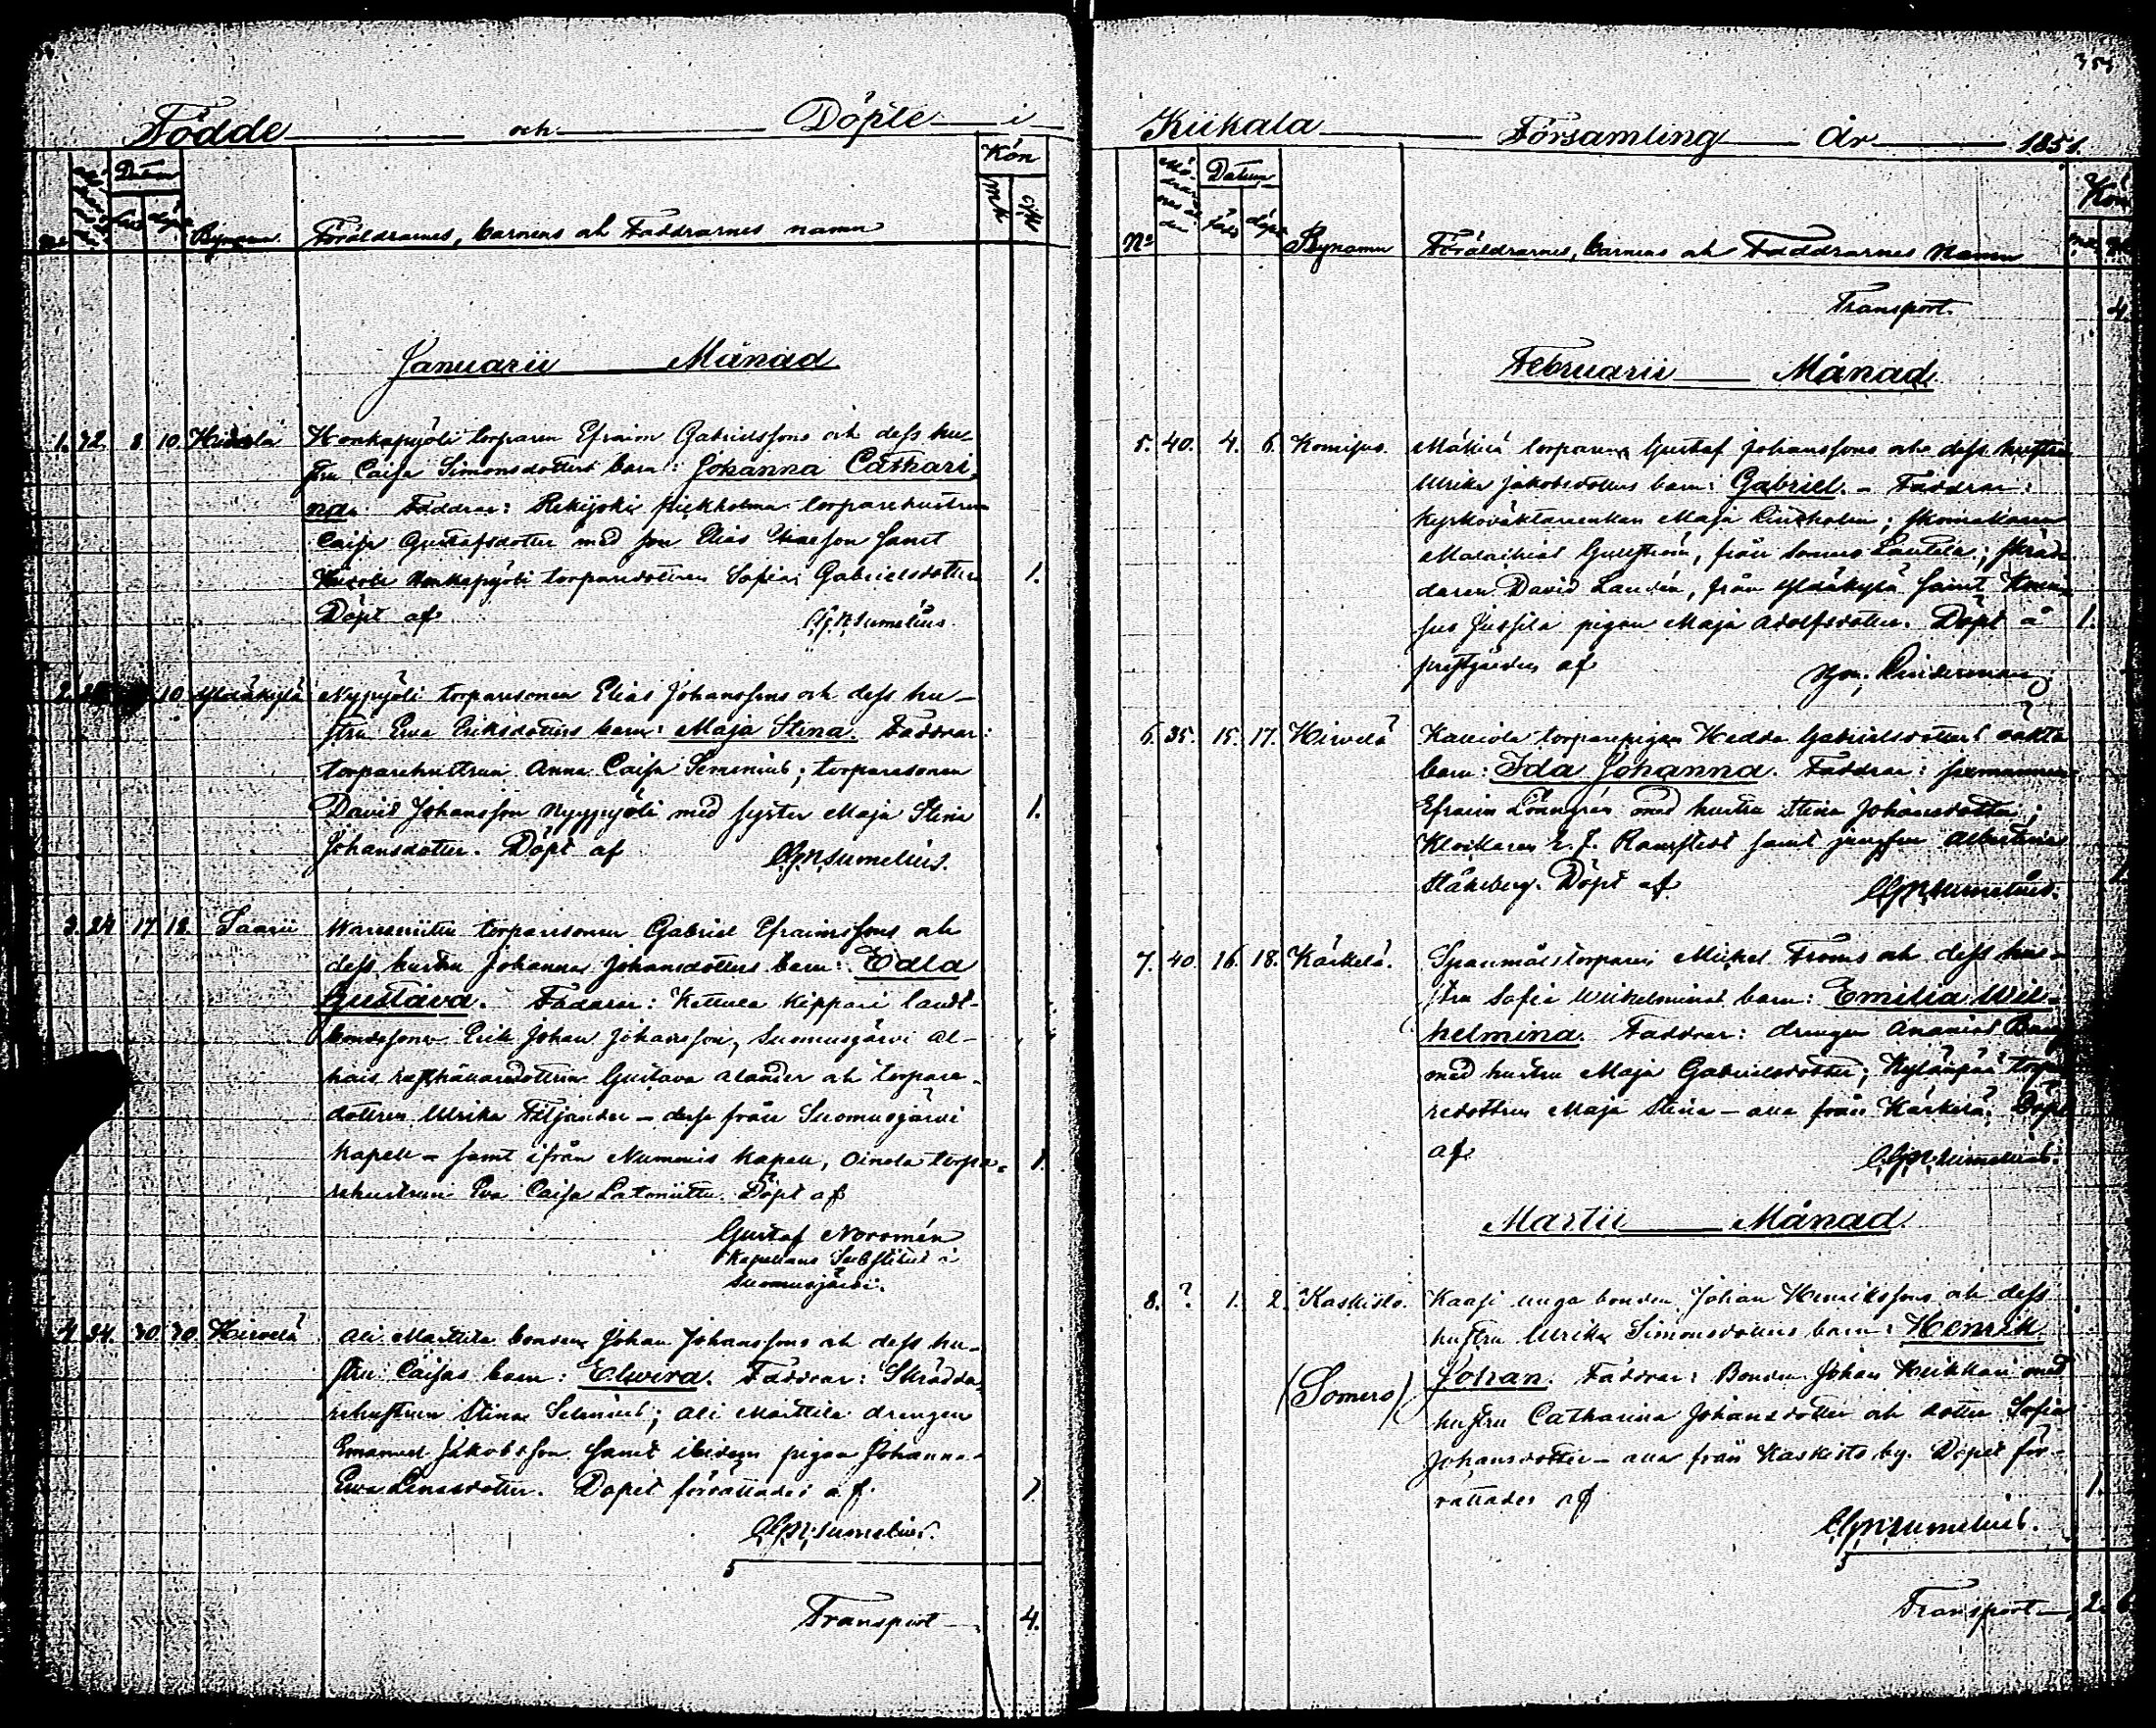 Födde och Döpte i
Kön
Datum
född döpt
mk qk
No Bynamn Föräldrarnes, barnens och Faddrarnes namn
Januarii Månad
1. 32. 8 10. Honkapyöli torparen Efraim Gabrielssons och dess hu-
stru Caisa Simonsdotters barn: Johanna Cathari-
na. Faddrar: Rekijoki torparehustrun
Caisa Gustafsdotter med son Elias samt
Honkapyöli torparedottren Sofia Gabrielsdotter 1.
Döpt af Sumelius.
2. 10. Yldäkylä Nyypyöli torparesonen Elias Johanssons och dess hu-
stru Ewa Eriksdotters barn: Maja Stina. Faddrar:
torparehustrun Anna Caisa Semenius; torparesonen
David Johansson Nyypyöli med syster Maja Stina 1.
Johansdotter. Döpt af Sumelius.
3. 24 17 18. Saarii torparesonen Gabriel Efraimssons och
dess hustru Johanna Johansdotters barn: Edla
Gustava. Faddrar: Kettula Kippari landt-
bondesonen Erik Johan Johansson, Suomusjärvi
Gustava Alander och torpare-
dottren Ulrika Filjander - desse från Suomusjärvi
Kapell - samt ifrån Nummis Kapell, Oinola torpa- 1.
rehustrun Eva Caisa Latoniittu. Döpt af
Gustaf Norrmén
Kapellans Substitut i
Suomusjärvi.
4. 34. 30. 30. Hirvelä Ali Marttila bonden Johan Johanssons och dess hu-
stru Caisas barn: Elwira. Faddrar: Skrädda-
rehustrun Stina Selenius; Ali Marttila drengen
Emanuel Jakobsson samt ibidem pigan Johanna
Ewa Lenasdotter. Dopet förrättades af 1.
Sumelius.
Transport 4.
Kiikala Församling År 1851.
Kön
Datum
född döpt
No Bynamn Föräldrarnes, barnens och Faddrarnes Namn
Transport. 4.
Februarii Månad.
5. 40. 4. 6. Komisuo. torparen Gustaf Johanssons och dess hustru
Ulrika Jakobsdotters barn: Gabriel. - Faddrar:
Kyrkoväktarenkan Maja Lindholm; skomakaren
från Somero Lautela; skräd-
daren David Landén, från Yldäkylä samt Komi-
suo Jussila pigan Maja Adolfsdotter. Döpt å 1.
prestgården af
Linderman.
6. 35. 15. 17. Hirvelä Kalliola torparepigan Hedda Gabrielsdotters oäkta
barn: Ida Johanna. Faddrar:
Efraim Lönngrén med hustru Stina Johansdotter;
Klockaren E. J. Ramstedt samt jungfrun Albertina
Ståhlberg. Döpt af Sumelius.
7. 40. 16. 18. Kärkelä. Spanmålstorparen Michel Froms och dess hu-
stru Sofia Wilhelminas barn: Emilia Wil-
helmina. Faddrar: drengen Ananias
med hustru Maja Gabrielsdotter; Kylänpää torpa-
redottren Maja Stina - alla från Kärkelä. Döpt
af Sumelius.
Martii Månad.
8. ? 1. 2. Kaskisto. Kaasi unga bonden Johan Henrikssons och dess
hustru Ulrika Simonsdotters barn: Henrik
(Somero) Johan. Faddrar: Bonden Johan Heikkari med
hustru Catharina Johansdotter och dotter Sofia
Johansdotter - alla från Kaskisto by. Dopet för-
rättades af 1.
Sumelius.
Transport 2. 6